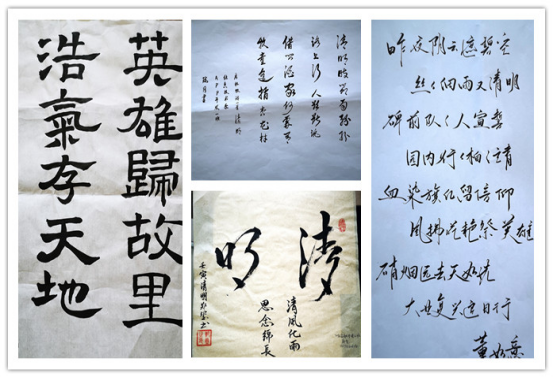 英雄歸故里
浩氣存天地
清明時節雨紛紛
路上行人欲断魂
借问酒家何处有
牧童遥指杏花村
清
明
清風化雨
思念綿長
壬寅清明
昨夜阴云遮碧空
丝丝细雨又清明
碑前队队人宣誓
园内行行柏注青
血染旗红留信仰
风拂花艳祭英雄
硝烟远去天如洗
大业复兴这日行